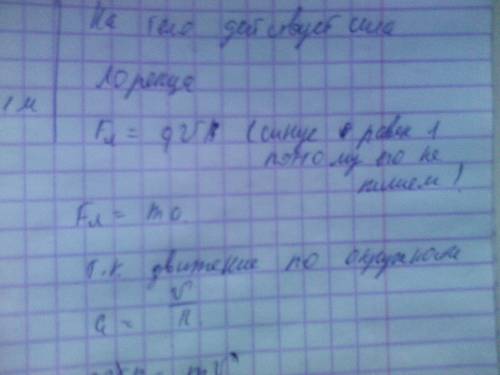 На тело действует сила
Лоренца
1 м
Fл = qVB (синус равен 1
потому его не
пишем)
Fл = ma
т.к. движение по окружности
a = V/R